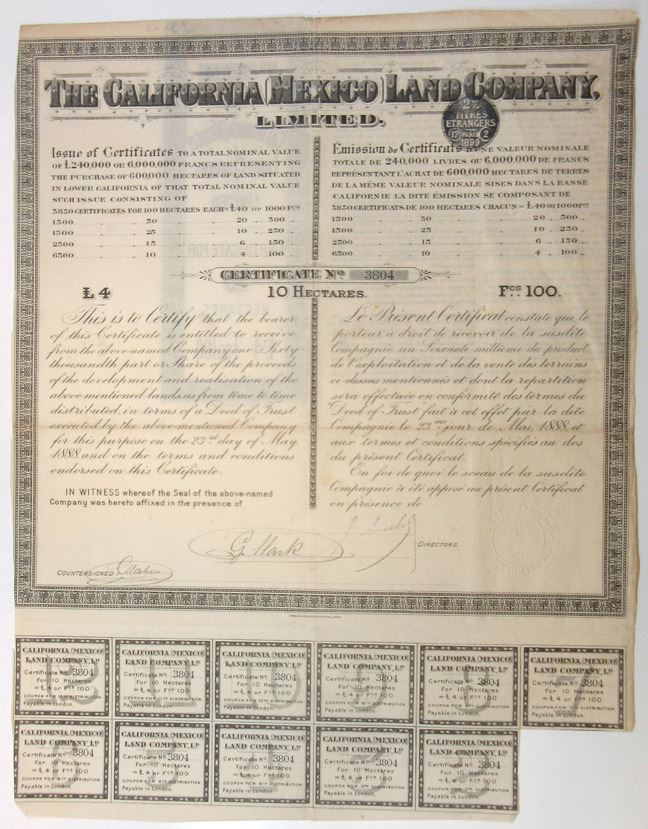 THE CALIFORNIA (MEXICO) LAND COMPANY,
LIMITED.
2%
TITRES
ETRANGERS
1899
Issue of Certificates TO A TOTAL NOMINAL VALUE
OF £240,000 OR 6,000,000 FRANCS REPRESENTING
THE PURCHASE OF 600,000 HECTARES OF LAND SITUATED
IN LOWER CALIFORNIA OF THAT TOTAL NOMINAL VALUE
SUCH ISSUE CONSISTING OF
3850 CERTIFICATES FOR 100 HECTARES EACH = £40 OR 1000 Fcs
1500 .. 50 .. 20 .. 500 ..
1500 .. 25 .. 10 .. 250 ..
2500 .. 15 .. 6 .. 150 ..
6500 .. 10 .. 4 .. 100 ..
Émission de Certificats D'UNE VALEUR NOMINALE
TOTALE DE 240,000 LIVRES OU 6,000,000 DE FRANCS
REPRÉSENTANT L'ACHAT DE 600,000 HECTARES DE TERRES
DE LA MÊME VALEUR NOMINALE SISES DANS LA BASSE
CALIFORNIE LA DITE ÉMISSION SE COMPOSANT DE
3850 CERTIFICATS DE 100 HECTARES CHACUN = £40 OU 1000 Fcs
1500 .. 50 .. 20 .. 500 ..
1500 .. 25 .. 10 .. 250 ..
2500 .. 15 .. 6 .. 150 ..
6500 .. 10 .. 4 .. 100 ..
CERTIFICATE No 3804
£4 10 HECTARES Fcs 100.
This is to Certify that the bearer
of this Certificate is entitled to receive
from the above-named Company one Sixty
thousandth part or Share of the proceeds
of the development and realisation of the
above mentioned lands as from time to time
distributed, in terms of a Deed of Trust
executed by the above mentioned Company
for this purpose on the 23rd day of May
1888 and on the terms and conditions
endorsed on this Certificate.
IN WITNESS whereof the Seal of the above-named
Company was hereto affixed in the presence of
Le Présent Certificat constate que le
porteur a droit de recevoir de la susdite
Compagnie un Soixante millième du produit
de l'exploitation et de la vente des terrains
ci-dessus mentionnés et dont la repartition
sera effectuée en conformité des termes du
Deed of Trust fait à cet effet par la dite
Compagnie le 23me jour de Mai, 1888 et
aux termes et conditions spécifiés au dos
du présent Certificat.
En foi de quoi le sceau de la susdite
Compagnie a été apposé au présent Certificat
en présence de
DIRECTORS.
COUNTERSIGNED
CALIFORNIA (MEXICO) LAND COMPANY, Ld
Certificate No 3804
For 10 Hectares
= £4 or Fcs 100
Payable in London.
CALIFORNIA (MEXICO) LAND COMPANY, Ld
Certificate No 3804
For 10 Hectares
= £4 or Fcs 100
Payable in London.
CALIFORNIA (MEXICO) LAND COMPANY, Ld
Certificate No 3804
For 10 Hectares
= £4 or Fcs 100
Payable in London.
CALIFORNIA (MEXICO) LAND COMPANY, Ld
Certificate No 3804
For 10 Hectares
= £4 or Fcs 100
Payable in London.
CALIFORNIA (MEXICO) LAND COMPANY, Ld
Certificate No 3804
For 10 Hectares
= £4 or Fcs 100
Payable in London.
CALIFORNIA (MEXICO) LAND COMPANY, Ld
Certificate No 3804
For 10 Hectares
= £4 or Fcs 100
Payable in London.
CALIFORNIA (MEXICO) LAND COMPANY, Ld
Certificate No 3804
For 10 Hectares
= £4 or Fcs 100
Payable in London.
CALIFORNIA (MEXICO) LAND COMPANY, Ld
Certificate No 3804
For 10 Hectares
= £4 or Fcs 100
Payable in London.
CALIFORNIA (MEXICO) LAND COMPANY, Ld
Certificate No 3804
For 10 Hectares
= £4 or Fcs 100
Payable in London.
CALIFORNIA (MEXICO) LAND COMPANY, Ld
Certificate No 3804
For 10 Hectares
= £4 or Fcs 100
Payable in London.
CALIFORNIA (MEXICO) LAND COMPANY, Ld
Certificate No 3804
For 10 Hectares
= £4 or Fcs 100
Payable in London.